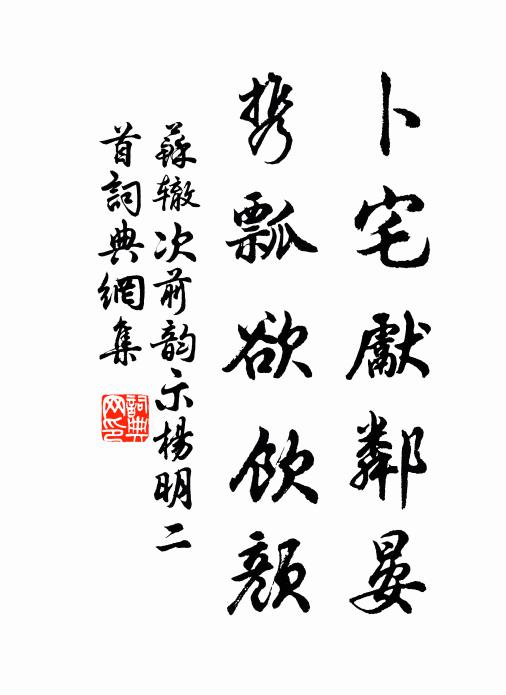 卜宅獻鄰晏
携瓢欲飲顔
蘇辙次前韵示楊明二
首詞典網集
詞典
网印